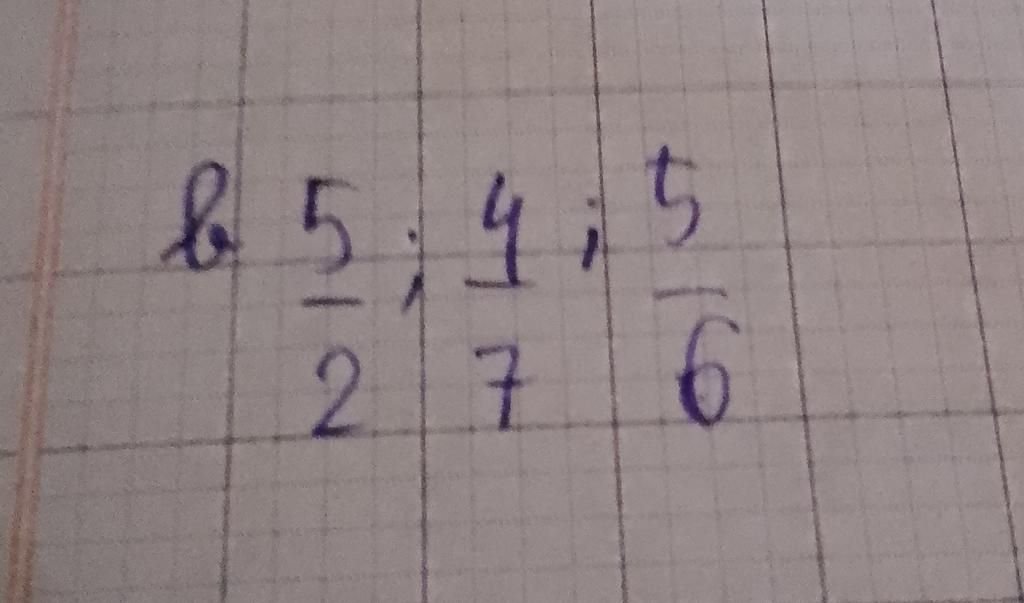 b 5/2 ; 4/7 ; 5/6